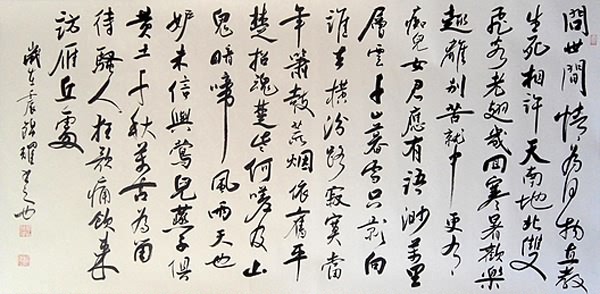 問世間情為何物直教
生死相許天南地北雙
飛客老翅幾回寒暑歡樂
趣離別苦就中更有
痴兒女君應有語渺萬里
層雲千山暮雪只影向
誰去橫汾路寂寞當
年簫鼓荒烟依舊平
楚招魂楚些何嗟及山
鬼暗啼風雨天也
妒未信與鶯兒燕子俱
黃土千秋萬古為留
待騷人狂歌痛飲來
訪雁丘處
歲在壬辰張耀